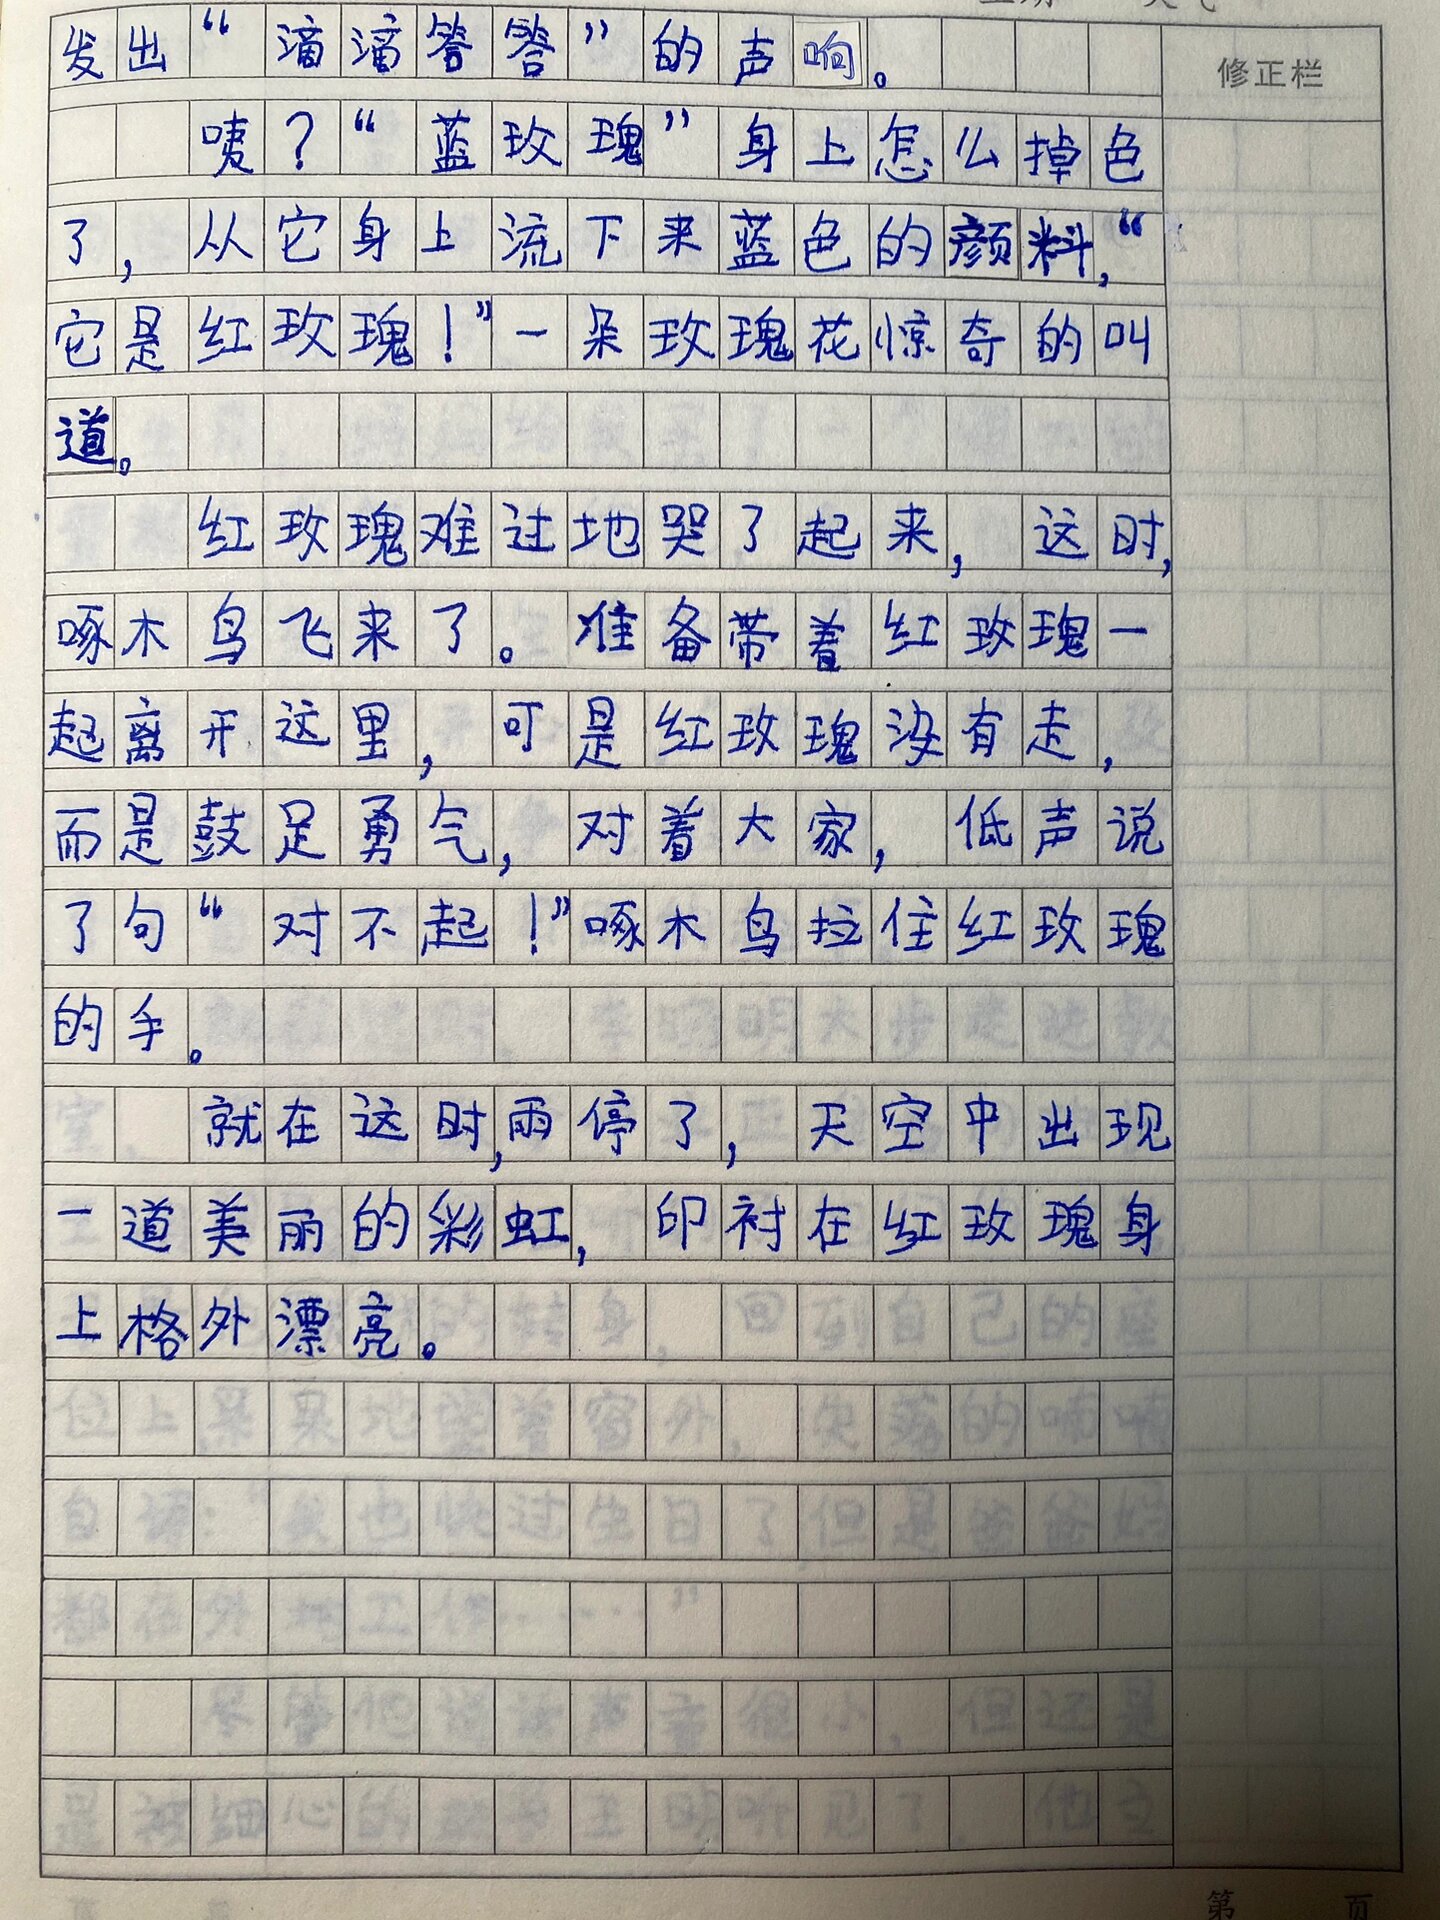 发出“滴滴答答”的声响。
修正栏
唛？“蓝玫瑰”身上怎么掉色
了，从它身上流下来蓝色的颜料，“
它是红玫瑰！”一朵玫瑰花惊奇的叫
道。
红玫瑰难过地哭了起来，这时，
啄木鸟飞来了。准备带着红玫瑰一
起离开这里，可是红玫瑰没有走，
而是鼓足勇气，对着大家，低声说
了句“对不起！”啄木鸟拉住红玫瑰
的手。
就在这时，雨停了，天空中出现
一道美丽的彩虹，印衬在红玫瑰身
上格外漂亮。
第 页